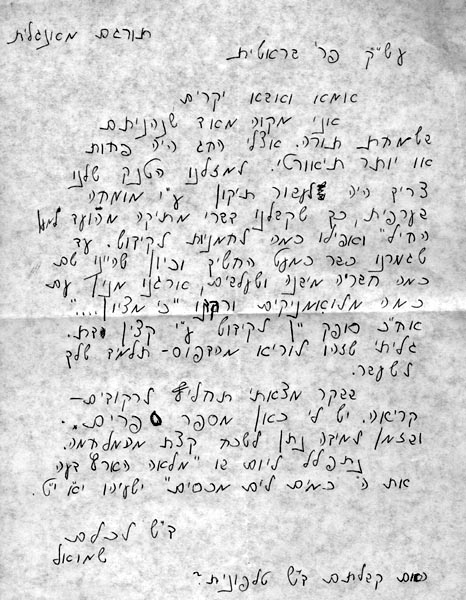 תורגם מאנגלית
עש"ק פר' בראשית
אמא ואבא יקרים
אני מקוה מאד שנהניתם
בשמחת תורה. אצלי החג היה פחות
או יותר תיאורטי. למזלנו הטנק שלנו
צריך היה לעבור תיקון ע"י מומחה
בערפית, כך שקבלנו דברי מתיקה מהועד למען
החיל" ואפילו כמה לחמניות לקידוש. עד
שגמרנו כבר כמעט החשיך וכיון שהיינו שם
כמה חבריה מיבנה ושעלבים, ארגנו מנין עם
כמה מלואימניקים ורקדנו "כי מציון..."
אח"כ סופק יין לקידוש ע"י קצין דת.
גליתי שזהו לוריא מהדפוס - תלמיד שלך
לשעבר.
בבקר מצאתי תחליף לרקודים-
קריאה. יש לי כאן מספר ספרים..
ובזמן למידה נתן לשכח קצת מהמלחמה.
נתפלל ליום בו "מלאה הארץ דעה
את ה' כמים לים מכסים" ישעיהו י"א ט'.
ד"ש לכלם
שמואל
האם קבלתם ד"ש טלפונית?